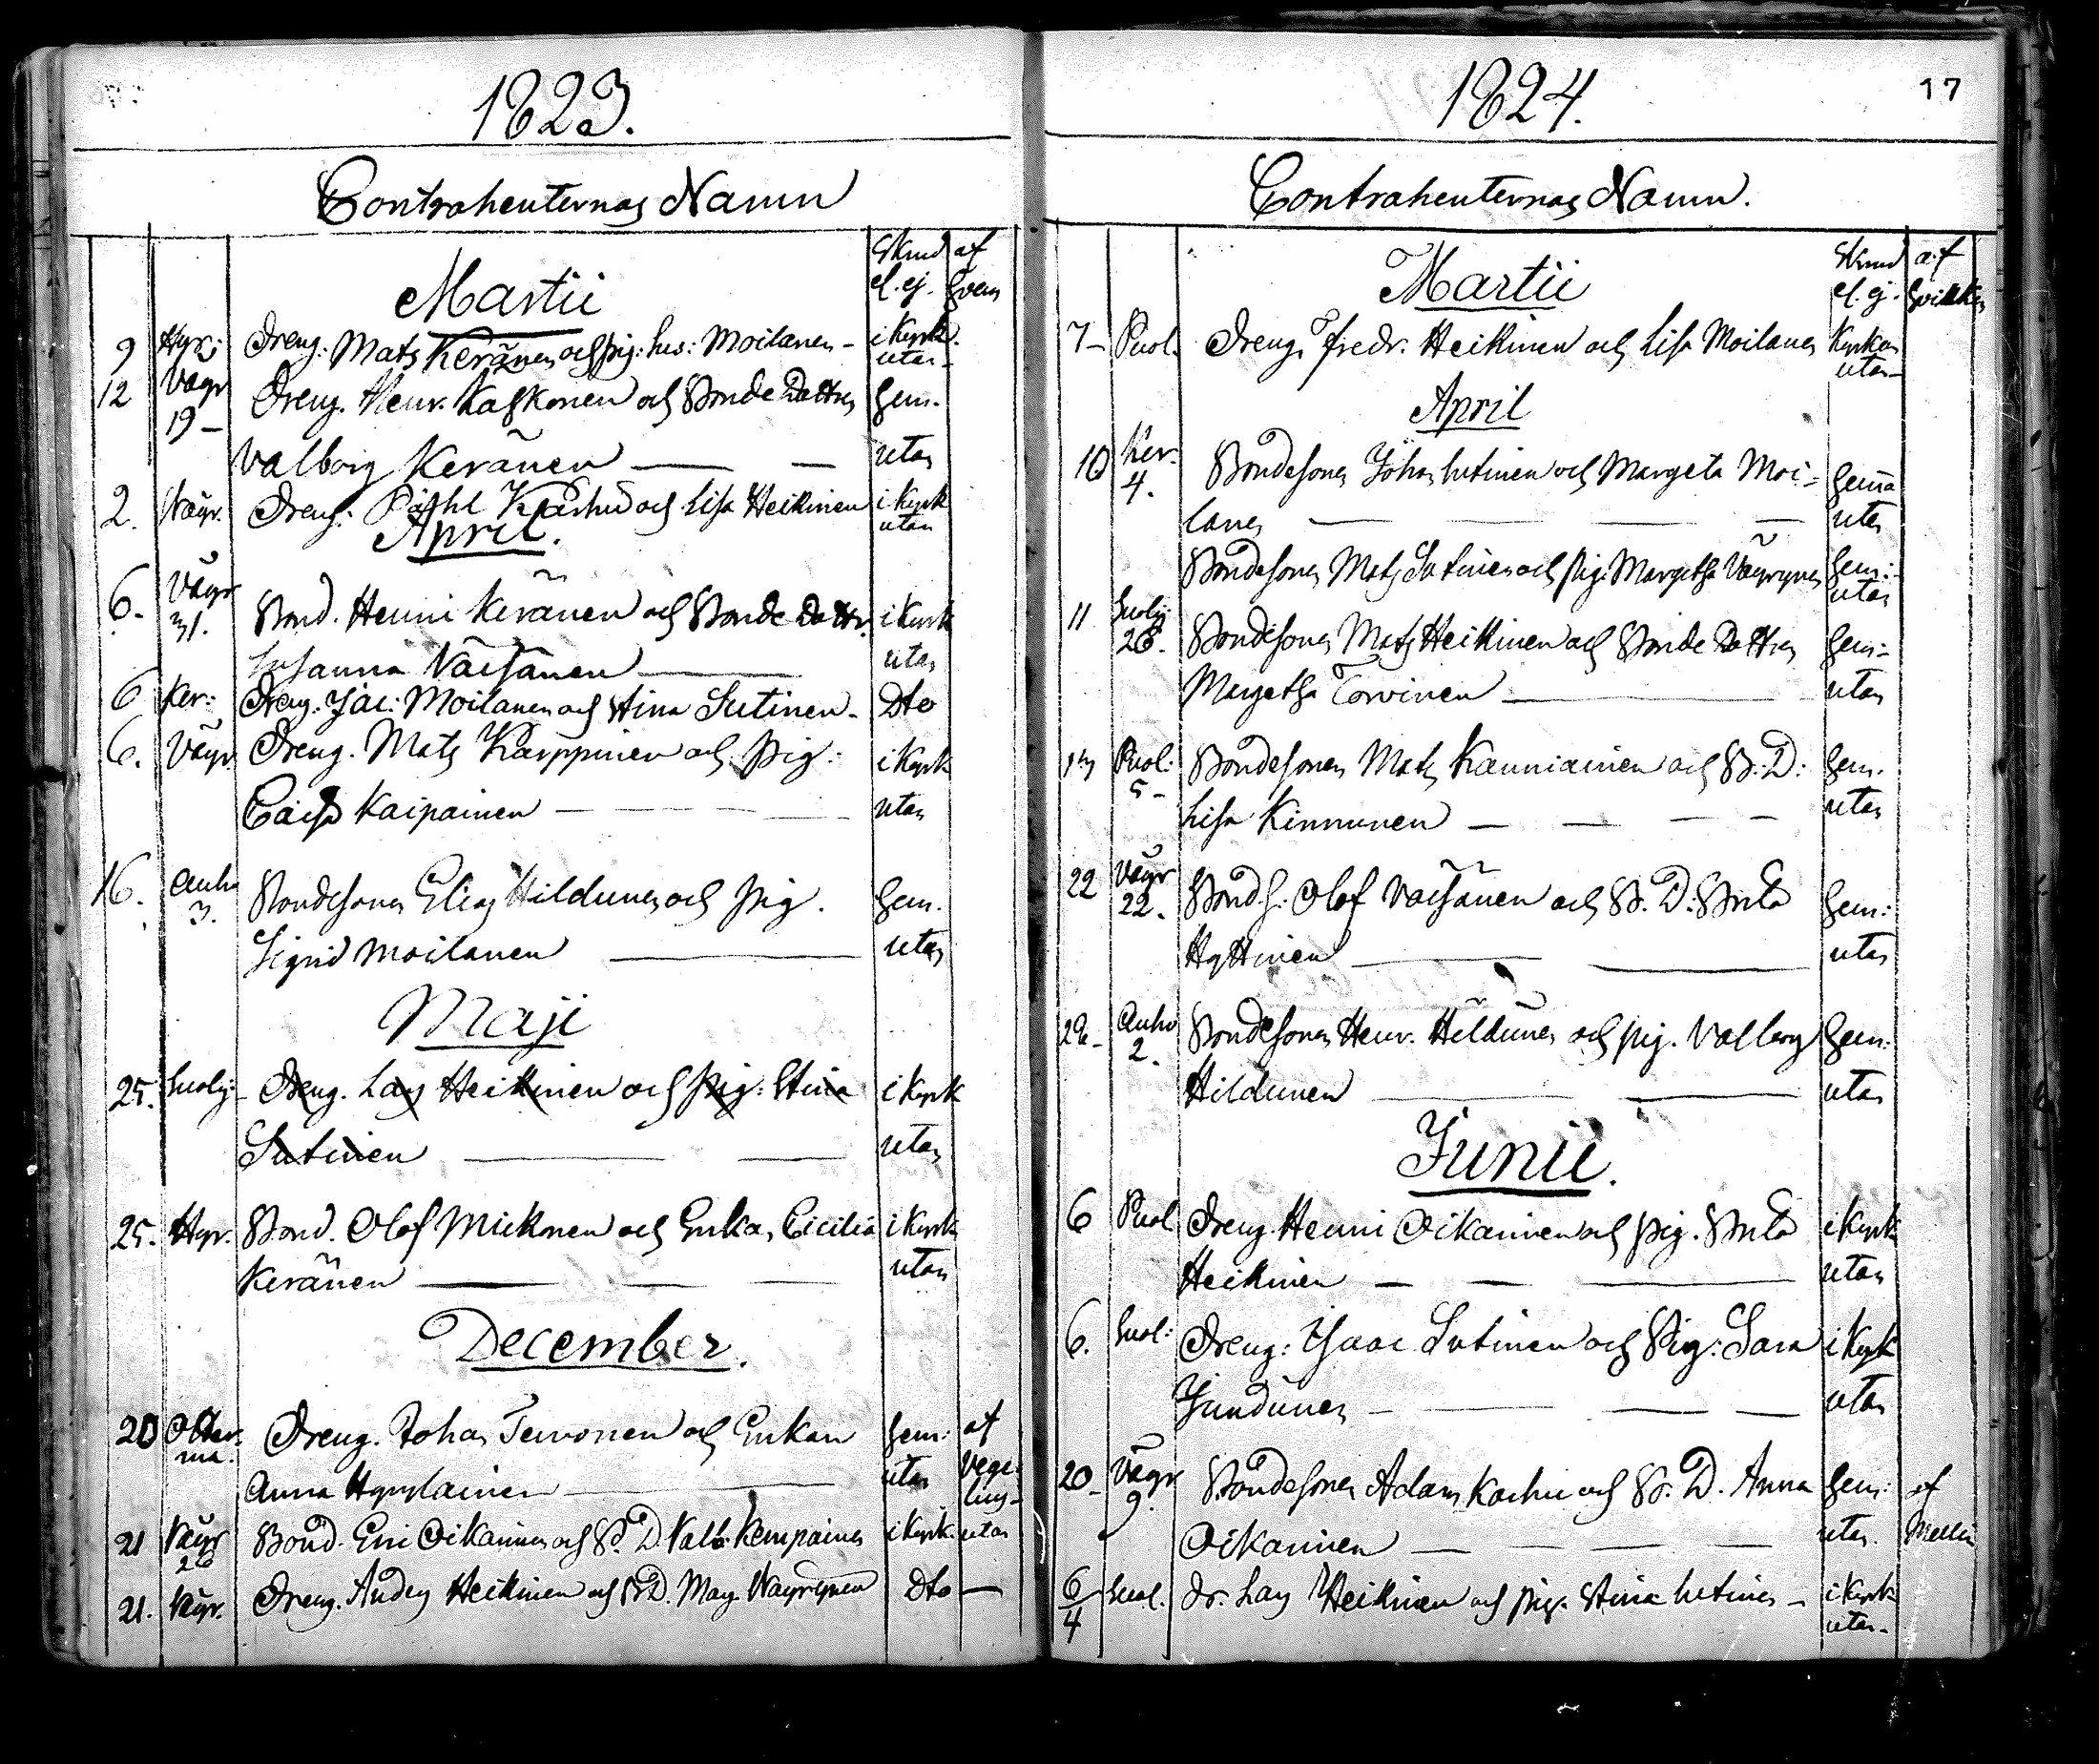 1823.
Contrahenternas Namn
Skrud af
el. ej. hvem
Martii
9 Hyr: Dreng: Mats Keränen och pig: Lis: Moilanen - i Kyrk.
utan -
12 Väyr 19 - Dreng. Henr. Kaskonen och Bonde Dottren hem.
Valborg Keränen — — utan
2. Wäyr. Dreng: Påhl Karhu och Lisa Heikinen i Kyrk
utan
April.
6. Väyr 31. Bond. Henric Keränen och Bonde Dottr. i Kyrk
Susanna Väisänen — utan
6 Ker: Dreng: Jac: Moilanen och Stina Sutinen - Dto
6. Väyr. Dreng. Mats Karppinen och pig: i Kyrk
Caisa Kaipainen — — — utan
16. Auho 3. Bondesonen Elias Hildunen och pig. hem.
Sigrid Moilanen — utan
Maji
25. Suolij- Dreng. Lars Heikinen och pig: Stina i Kyrk
Sutinen — — utan
25. Hyr. Bond. Olof Mickonen och Enkan Cicilia i Kyrk
Keränen — — — utan
December.
20 Otter- Dreng. Johan Tervonen och Enkan hem: af
ma. Anna Hyrylainen — utan Vege-
lius -
21 Väyr 26 Bond. Eric Oikarinen och B. D. Valb: Kempainen i Kyrk. utan
21. Väyr. Dreng. Anders Heikinen och B.D. Marg. Wäyrynen Dto —
17
1824.
Contrahenternas Namn.
Skrud af
el. ej. hvilken
Martii
7 - Puol. Dreng. Fredr. Heikinen och Lisa Moilanen Kyrkan
utan -
April
10 Ker. 4. Bondesonen Johan Lutinen och Margeta Moi- hema
lanen — — — utan
Bondesonen Mats Sutinen och pig: Margetha Väyrynen hem:
utan
11 Suolij: 26. Bondesonen Mats Heikinen och Bonde Dottren hem-
Margetha Torvinen — utan
Puol: 5 - Bondesonen Mats Kauniainen och B: D: hem.
Lisa Kinnunen — — — — utan
22 Väyr 22. Bond. S: Olof Väisänen och B. D: Brita hem:
Hyttinen — — utan
26 - Auho 2. Bondesonen Henr. Hildunen och pig. Valborg hem:
Hildunen — — utan
Junii.
6 Puol Dreng Henric Oikarinen och pig. Brita i Kyrk
Heikinen — — — utan
6. Suol: Dreng: Isaac Sutinen och Pig: Sara i Kyrk
Jundunen — — — utan
20 - Väyr 9. Bondesonen Adam Karhu och B. D. Anna hem: af
Oikarinen — — — — utan. Mellin
6/4 Suol. Dr. Lars Heikinen och pig. Stina Lutinen - i Kyrk
utan -